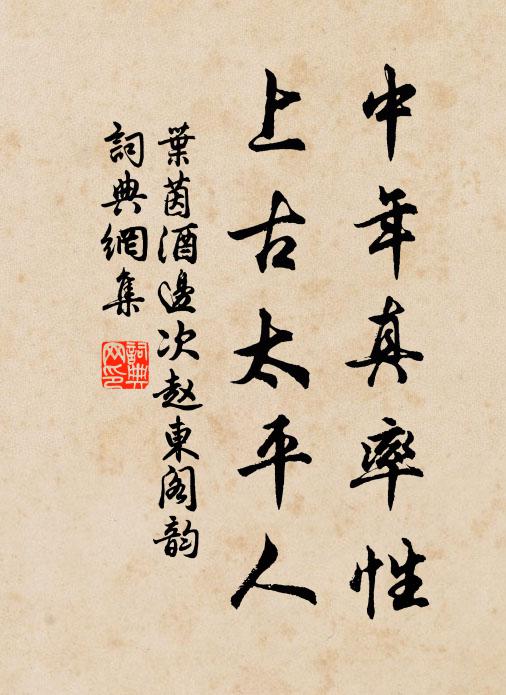 中年真率性
上古太平人
葉茵酒邊次赵東阁韵
詞典網集
詞典网印